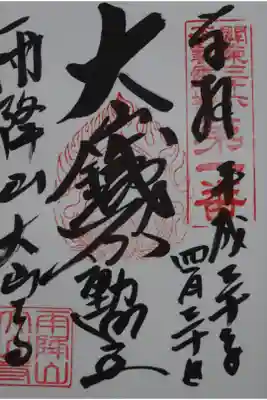 奉拝
關東三十六
第一番
平成二十年
四月二十日
大山鐵不動尊
雨降山 大山寺
雨降山